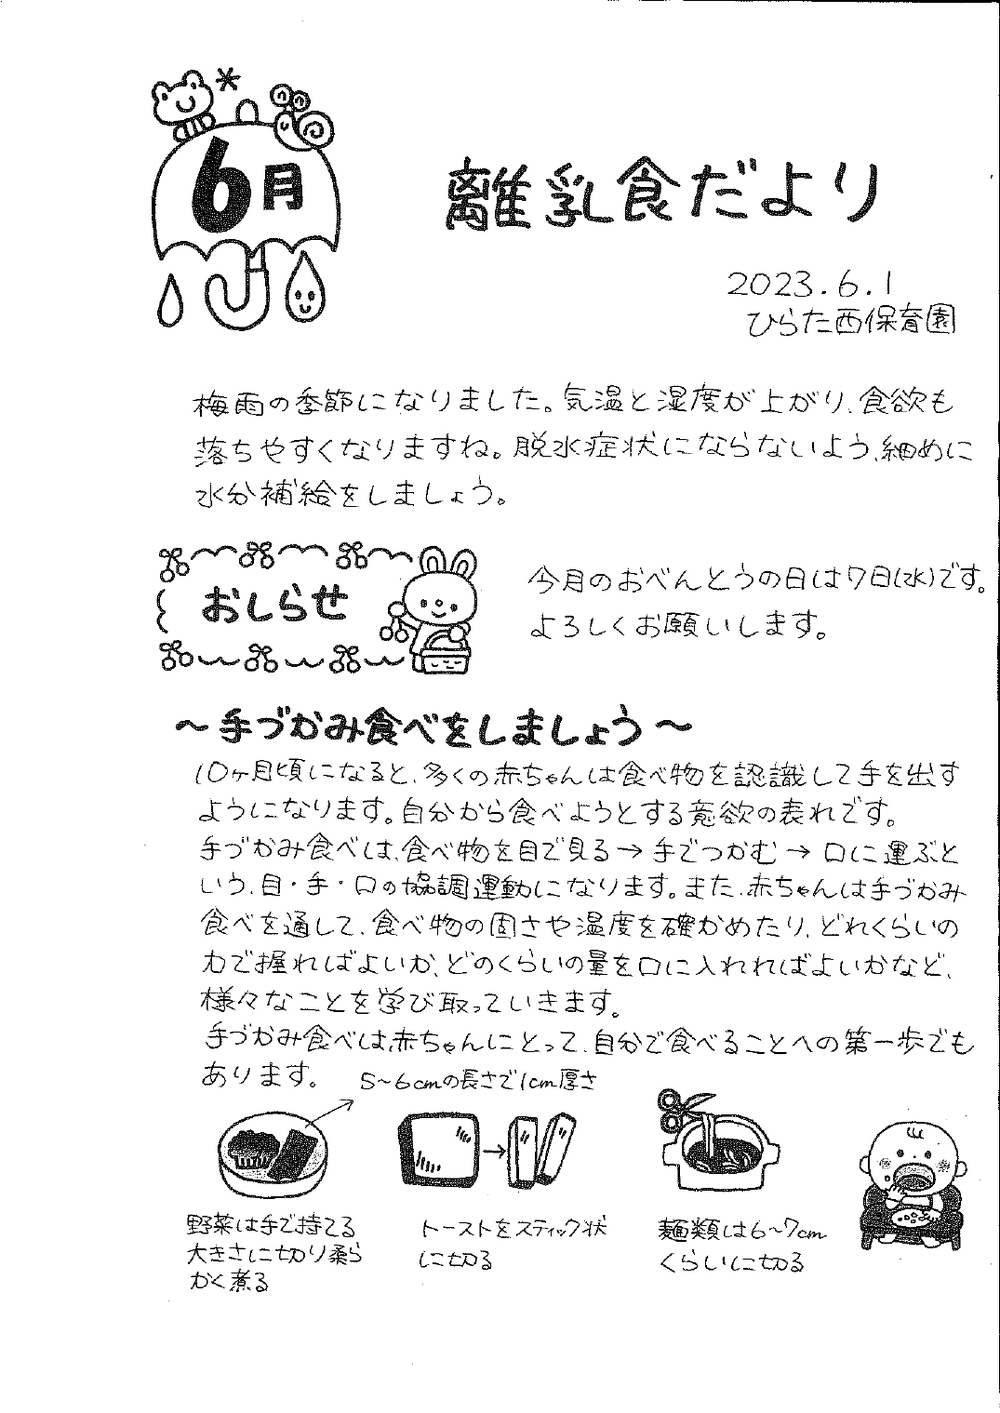 6月
離乳食だより
2023.6.1
ひらた西保育園
梅雨の季節になりました。気温と湿度が上がり、食欲も
落ちやすくなりますね。脱水症状にならないよう、細めに
水分補給をしましょう。
おしらせ
今月のおべんとうの日は7日(水)です。
よろしくお願いします。
～手づかみ食べをしましょう～
10ヶ月頃になると、多くの赤ちゃんは食べ物を認識して手を出す
ようになります。自分から食べようとする意欲の表れです。
手づかみ食べは、食べ物を目で見る→手でつかむ→口に運ぶと
いう、目・手・口の協調運動になります。また、赤ちゃんは手づかみ
食べを通して、食べ物の固さや温度を確かめたり、どれくらいの
力で握ればよいか、どのくらいの量を口に入れればよいかなど、
様々なことを学び取っていきます。
手づかみ食べは、赤ちゃんにとって、自分で食べることへの第一歩でも
あります。
5～6cmの長さで1cm厚さ
野菜は手で持てる
大きさに切り柔ら
かく煮る
トーストをスティック状
に切る
麺類は6～7cm
くらいに切る